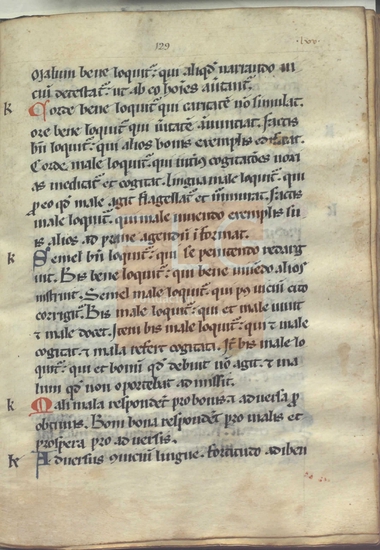 129 .lxv.
Malum bene loquit᷑ qui aliqd narrando ui
cium detestat᷑ ut ab eo hoīes auertant᷑.
k Corde bene loquit᷑ qui caritatē nō simulat.
ore bene loquit᷑ qui ueritatē annuntiat. factis
bn̄ loquit᷑ qui alios bonis exemplis edificat.
Corde male loquit᷑ qui intus cogitatōes noxi
as meditat᷑ et cogitat. lingua male loquit᷑ qui
p eo qd male agit flagellat᷑ et murmurat. factis
male loquit᷑ qui male uiuendo exemplis su
is alios ad praue agendum īformat.
k Semel bn̄ loquit᷑ qui se penitendo redarg
uit. Bis bene loquit᷑ qui bene uiuēdo alios
instruit. Semel male loquit᷑ qui cito
corrigit᷑. Bis male loquit᷑ qui et male uiuit
et male docet. Item bis male loquit᷑ qui et male
cogitat et mala refert cogitata. Itē bis male lo
quit᷑ qui et bonū qd debuit nō agit et ma
lum qd non oportebat admisit.
k Mali mala respondent pro bonis et aduersa p
optimis. Boni bona respondent pro malis et
prospera pro aduersis.
k Aduersus conuicium lingue. fortitudo adiben